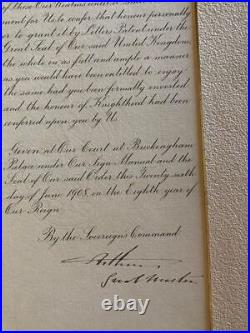 of these Our Realms under a
ment for Us to confer that honour personally
to grant it by Letters Patent under the
Great Seal of Our said United Kingdom,
the whole in as full and ample a manner
as you would have been entitled to enjoy
the same had you been formally invested
and the honour of Knighthood had been
conferred upon you by Us.
Given at Our Court at Buckingham
Palace under Our Sign Manual and the
Seal of Our said Order this Twenty sixth
day of June 1908 in the Eighth year of
Our Reign.
By the Sovereign's Command
Arthur.
Grand Master